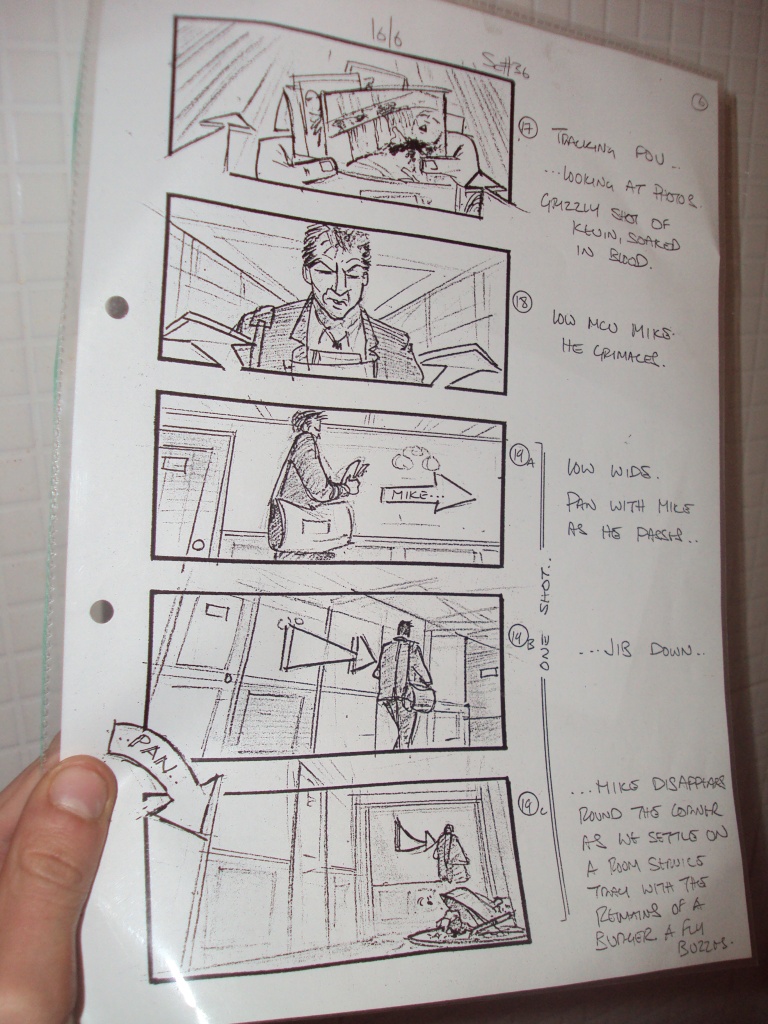 16/6
SC#36
6
17
TRACKING POV..
...LOOKING AT PHOTOS.
GRIZZLY SHOT OF
KEVIN, SOAKED
IN BLOOD.
18
LOW MCU MIKE.
HE GRIMACES.
19A
MIKE...
LOW WIDE.
PAN WITH MIKE
AS HE PASSES..
19B
ONE SHOT..
...JIB DOWN..
PAN..
19C
...MIKE DISAPPEARS
ROUND THE CORNER
AS WE SETTLE ON
A ROOM SERVICE
TRAY WITH THE
REMAINS OF A
BURGER A FLY
BUZZES.